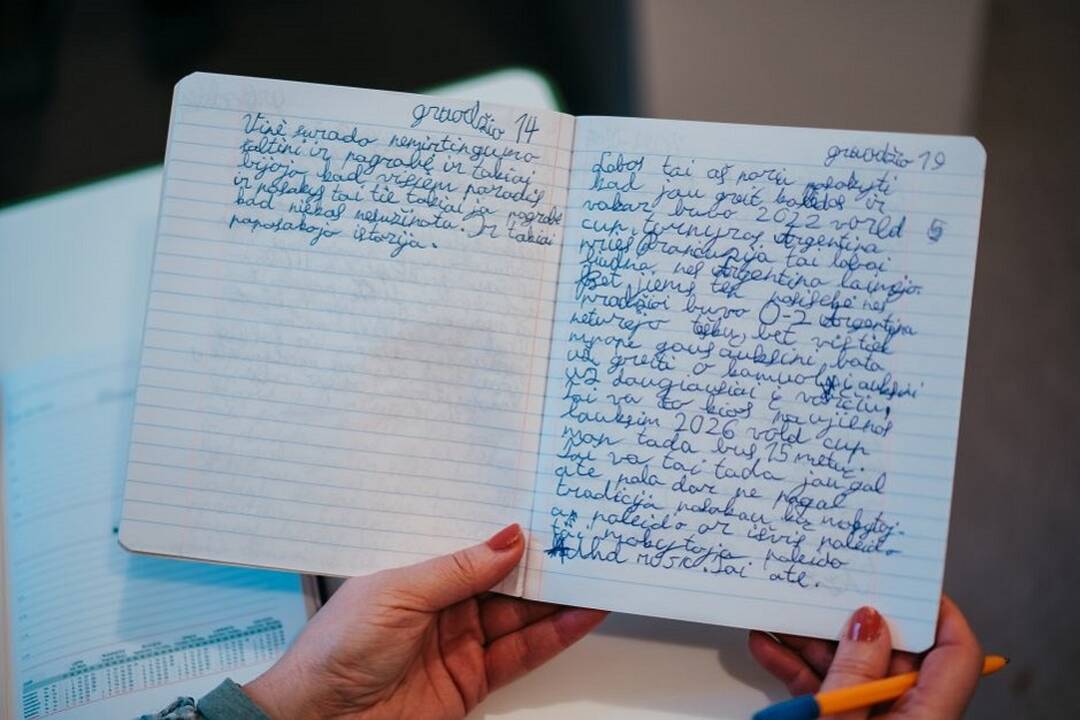 gruodžio 14
Vinč surado nemirtingumo
šaltinį ir pagrobė ir takiai
bijojo kad visiem parodys
ir pasakys tai tie takiai ją pagrobė
kad niekas nesužinotu. Ir takiai
papasakojo istoriją.
gruodžio 19
Labas tai aš noriu pasakyti
kad jau greit kalėdos ir
vakar buvo 2022 vorld
cup turnyras Argentina
prieš Prancuziją tai labai
liudna, nes Argentina laimėjo.
Bet jiems tik pasisekė nes
pradžioi buvo 0-2 Argentina
neturėjo taškų, bet vis tiek
mpape gaus auksini bata
už greiti o kamuolį auksini
už daugiausiai į varčių,
tai va to kios naujienos
lauksim 2026 vold cup
man tada bus 15 metu.
Tai va tai tada jau gal
ate pala dar ne pagal
tradiciją pasakau kir mokytoj.
ar paleido ar išvis paleido
tai mokytoja paleido
tai ate.